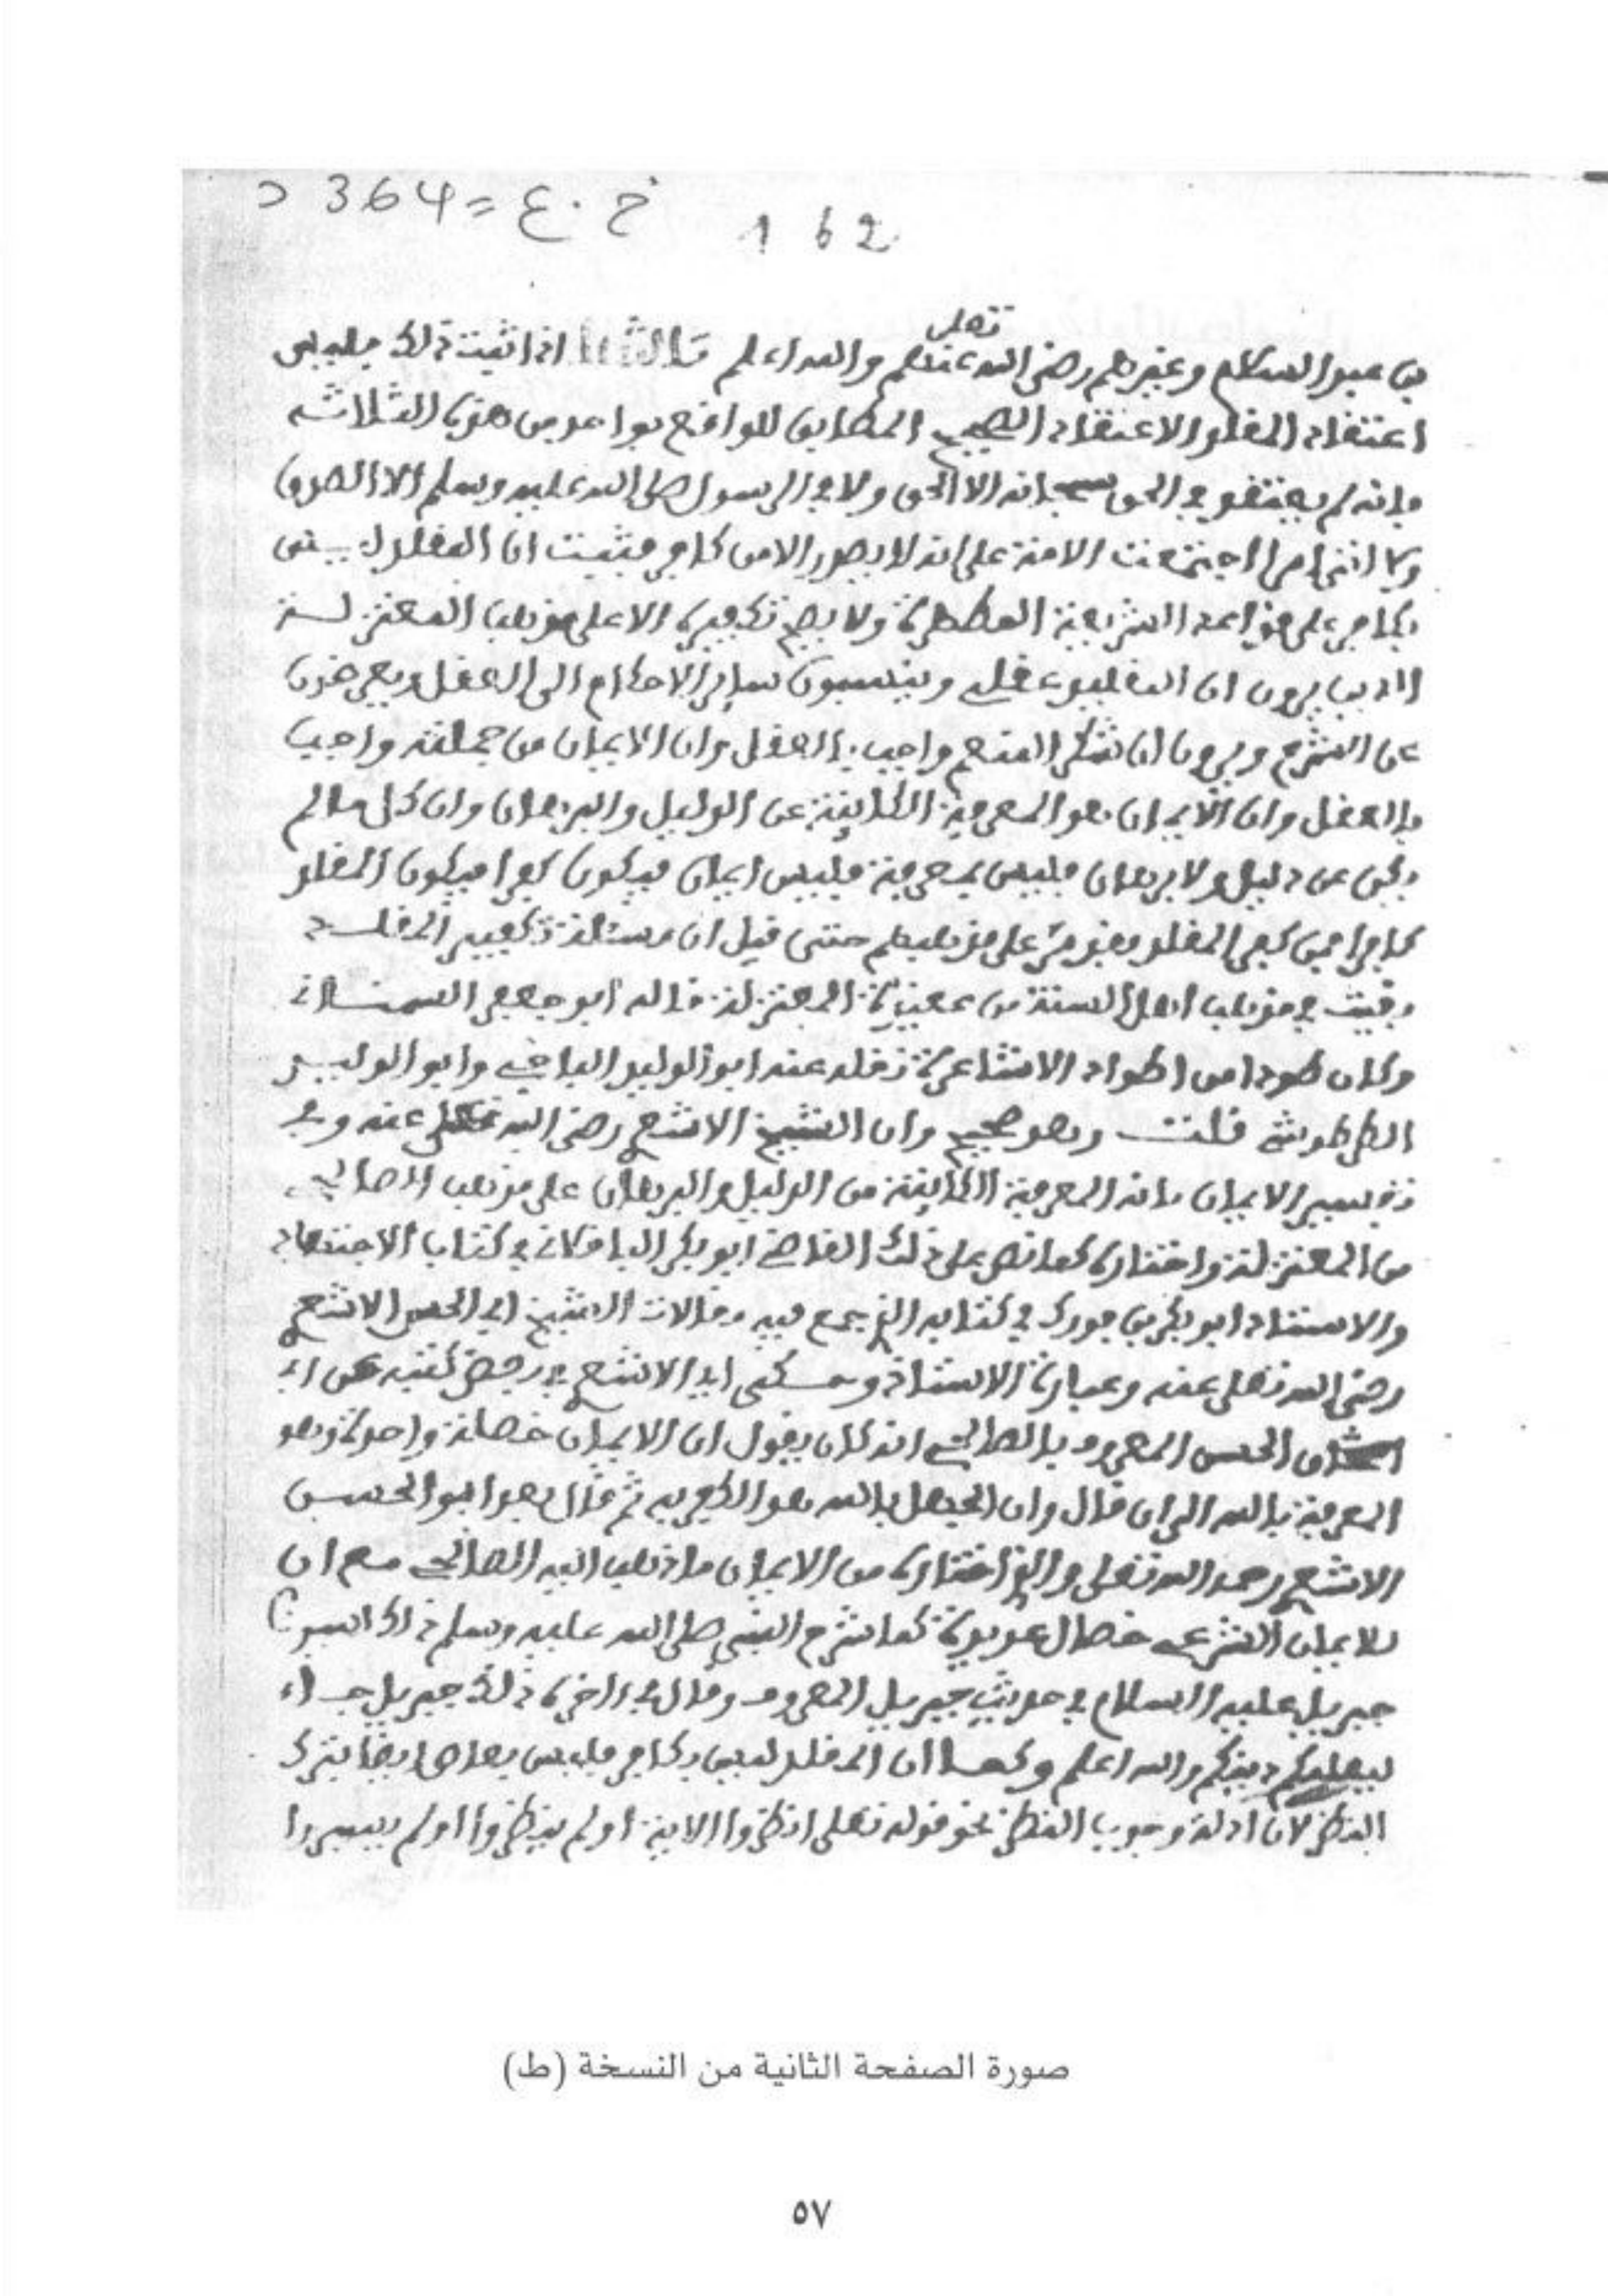 خ.ع = 364 د
162
تعلى
بن عبد السلام وغيرهم رضي الله عنهم والله اعلم اذا ثبت ذلك فليس
اعتقاد المقلد الاعتقاد الصحيح المطابق للواقع بواحد من هذه الثلاثة
فانه لم يعتقد في الحق سبحانه الا الحق ولا في الرسول صلى الله عليه وسلم الا الصدق
اجتمعت الامة على انه لا يصدر الا من كافر فثبت ان المقلد ليس
بكافر على قواعد الشريعة المطهرة ولا يصح تكفيره الا على مذهب المعتزلة
الذين يرون ان التقليد وينسبون ساير الاحكام الى العقل ويعرضون
عن الشرع ويرون ان شكر المنعم واجب بالعقل وان الايمان من جملته واجب
بالعقل وان الايمان هو المعرفة الكاينة عن الدليل والبرهان وان كل ما لم
يكن عن دليل ولا برهان فليس بمعرفة فليس ايمان فيكون كفرا فيكون المقلد
كافرا فمن كفر المقلد فقد مر على مذهبهم حتى قيل ان مسئلة تكفير المقلد
بقيت في مذهب اهل السنة من المعتزلة قاله ابو جعفر السمناني
وكان طودا من اطواد الاشاعرة نقله عنه ابو الوليد الباجي وابو الوليد
الطرطوشي قلت وهو صحيح وان الشيخ الاشعري رضي الله تعلى عنه
تفسير الايمان بانه المعرفة الكاينة من الدليل والبرهان على مذهب الصالحي
من المعتزلة واختاره كما نص على ذلك القاضي ابو بكر الباقلاني في كتاب الاجتهاد
والاستاذ ابو بكر بن فورك في كتابه الذي جمع فيه مقالات الشيخ ابي الحسن الاشعري
رضي الله تعلى عنه وعبارة الاستاذ وحكى اي الاشعري في بعض كتبه عن ابي
الحسن المعروف بالصالحي انه كان يقول ان الايمان خصلة واحدة وهو
المعرفة بالله الى ان قال وان الجهل بالله هو الكفر به ثم قال يعني ابو الحسن
الاشعري رحمه الله تعلى والذي اختاره من الايمان ما ذهب اليه الصالحي مع ان
للايمان الشرعي خصال عديدة كما شرح النبي صلى الله عليه وسلم ذلك
جبريل عليه السلام في حديث جبريل المعروف وقال في اخره ذلك جبريل جاء
ليعلمكم دينكم والله اعلم وكما ان المقلد ليس بكافر فليس بعاص ايضا بترك
النظر لان ادلة وجوب النظر نحو قوله تعلى انظروا الاية اولم ينظروا اولم يسيروا
صورة الصفحة الثانية من النسخة (ط)
٥٧